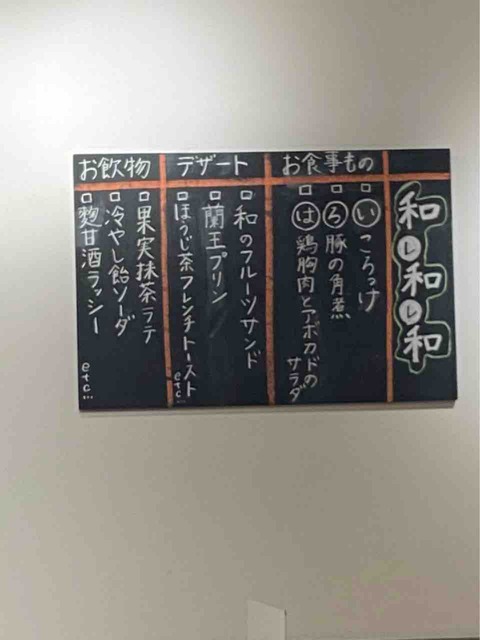 和レ和レ和
お食事もの
□ⓘころっけ
□ろ豚の角煮
□は鶏胸肉とアボカドのサラダ
デザート
□和のフルーツサンド
□蘭王プリン
□ほうじ茶フレンチトースト
etc...
お飲物
□果実抹茶ラテ
□冷やし飴ソーダ
□麴甘酒ラッシー
etc...